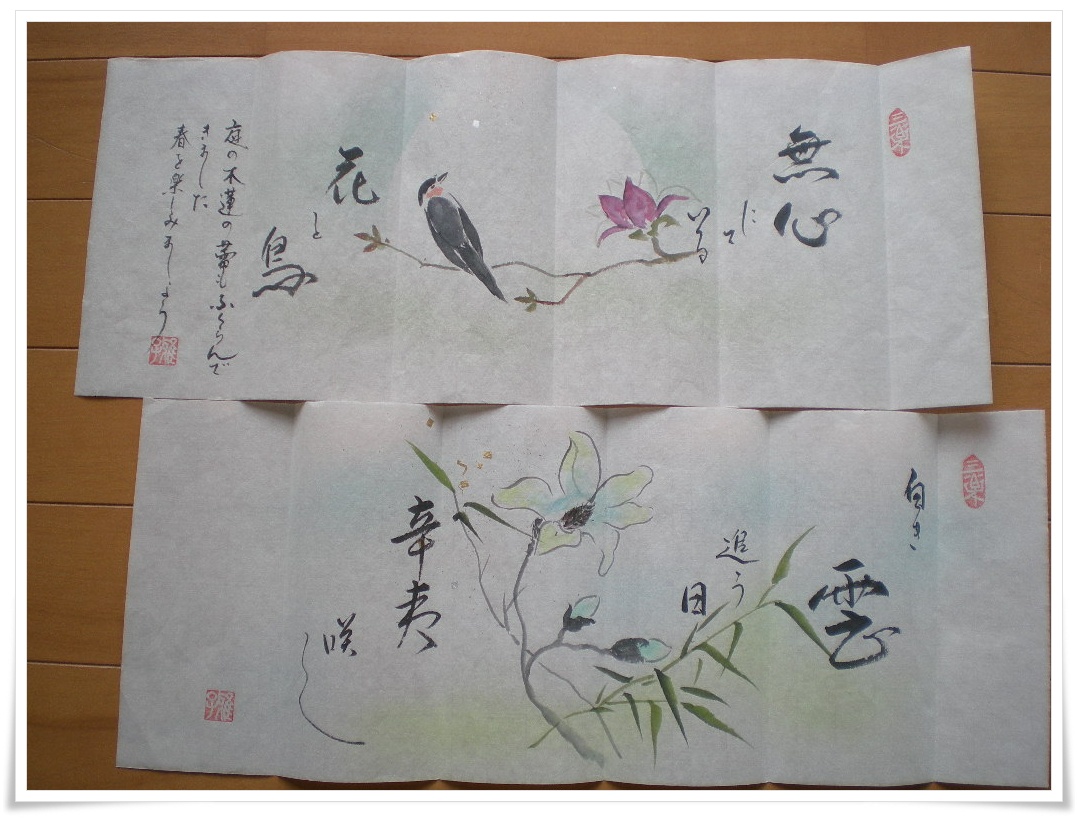 無心
にて
いる
花
と
鳥
庭の木蓮の蕾もふくらんで
きました
春を楽しみましょう
白き
雲
追う
日
辛夷
咲く